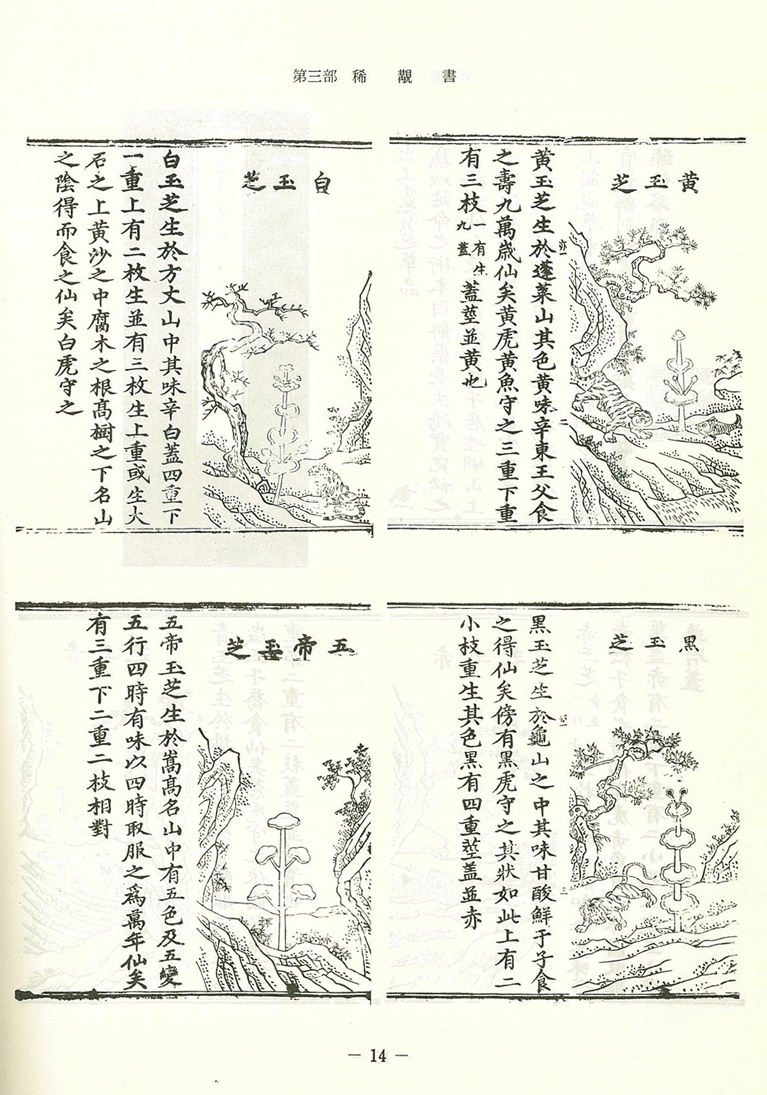 第三部 稀 覯 書
黄玉芝
黄玉芝生於蓬萊山其色黄味辛東王父食
之壽九萬歲仙矣黄虎黄魚守之三重下重
有三枝一有生九蓋蓋莖並黄也
白玉芝
白玉芝生於方丈山中其味辛白蓋四重下
一重上有二枚生並有三枚生上重或生大
石之上黄沙之中腐木之根髙樹之下名山
之陰得而食之仙矣白虎守之
黑玉芝
黑玉芝生於龜山之中其味甘酸鮮于子食
之得仙矣傍有黑虎守之其狀如此上有二
小枝重生其色黑有四重莖盖並赤
五帝玉芝
五帝玉芝生於嵩髙名山中有五色及五變
五行四時有味以四時取服之爲萬年仙矣
有三重下二重二枝相對
— 14 —